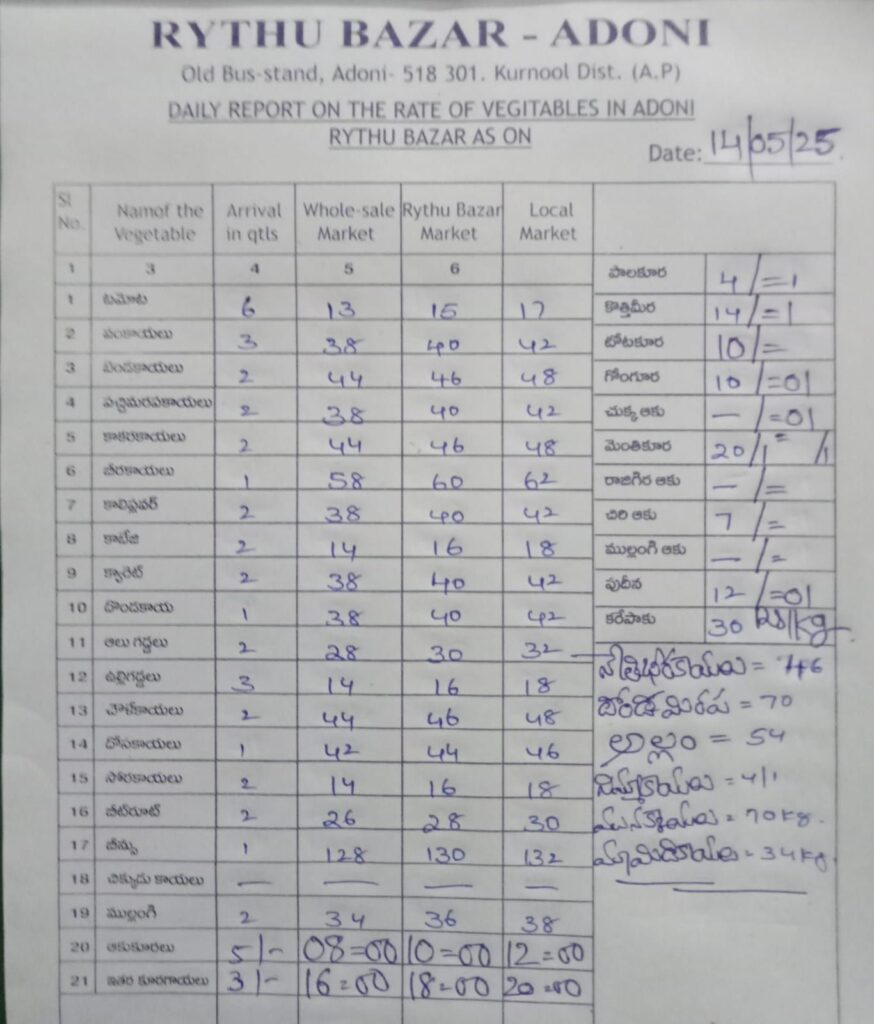 RYTHU BAZAR - ADONI
Old Bus-stand, Adoni- 518 301. Kurnool Dist. (A.P)
DAILY REPORT ON THE RATE OF VEGITABLES IN ADONI
RYTHU BAZAR AS ON
Date: 14/05/25
Sl No. Namof the Vegetable Arrival in qtls Whole-sale Market Rythu Bazar Market Local Market
1 3 4 5 6
1 టమోట 6 13 15 17
2 వంకాయలు 3 38 40 42
3 బెండకాయలు 2 44 46 48
4 పచ్చిమిరపకాయలు 2 38 40 42
5 కాకరకాయలు 2 44 46 48
6 బీరకాయలు 1 58 60 62
7 కాలిఫ్లవర్ 2 38 40 42
8 కాబేజి 2 14 16 18
9 క్యారెట్ 2 38 40 42
10 దొండకాయ 1 38 40 42
11 ఆలు గడ్డలు 2 28 30 32
12 ఉల్లిగడ్డలు 3 14 16 18
13 చౌళీకాయలు 2 44 46 48
14 దోసకాయలు 1 42 44 46
15 సొరకాయలు 2 14 16 18
16 బీట్‌రూట్ 2 26 28 30
17 బీన్సు 1 128 130 132
18 చిక్కుడు కాయలు — — — —
19 ముల్లంగి 2 34 36 38
20 ఆకుకూరలు 5/- 08=00 10=00 12=00
21 ఇతర కూరగాయలు 3/- 16=00 18=00 20=00
పాలకూర 4/=1
కొత్తిమీర 14/=1
తోటకూర 10/=
గోంగూర 10/=01
చుక్క ఆకు — /=01
మెంతికూర 20/1= /1
రాజగిర ఆకు — /=
చిరి ఆకు 7/=
ముల్లంగి ఆకు — /=
పుదీన 12/=01
కరేపాకు 30 RS/kg
= 46
= 70
అల్లం = 54
నిమ్మకాయలు = 4/1
మునక్కాయలు = 70 kg.
మామిడికాయలు = 34 kg.